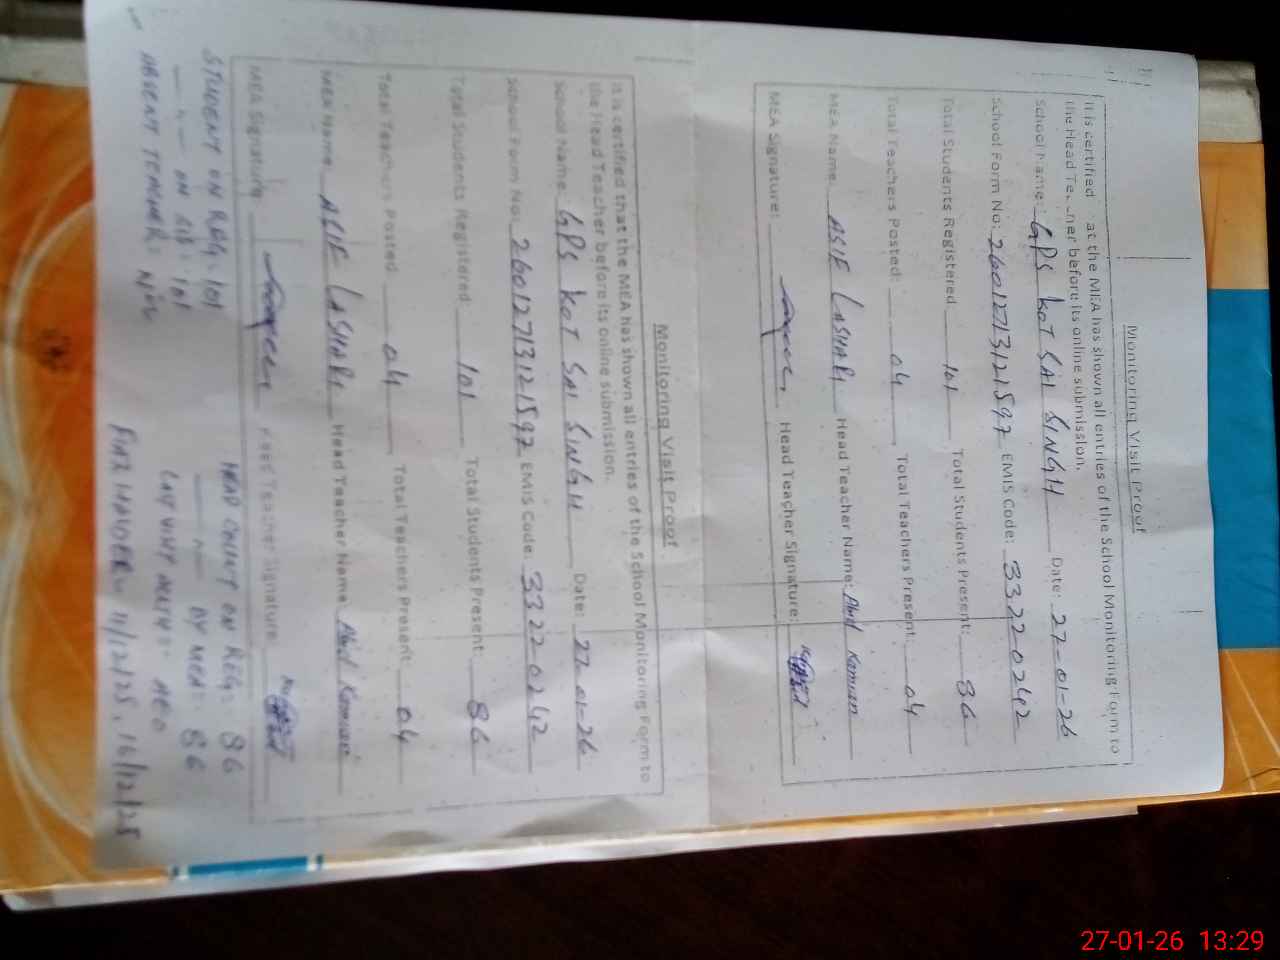 Monitoring Visit Proof
It is certified at the MEA has shown all entries of the School Monitoring Form to
the Head Te ner before its online submission.
School Name: GPS KOT SAI SINGH Date: 27-01-26
School Form No: 26012713121597 EMIS Code: 33220242
Total Students Registered 101 Total Students Present: 86
Total Teachers Posted: 04 Total Teachers Present: 04
MEA Name ASIF LASHARI Head Teacher Name: Abdl Kamran
MEA Signature: Head Teacher Signature:
Monitoring Visit Proof
It is certified that the MEA has shown all entries of the School Monitoring Form to
the Head Teacher before its online submission.
School Name GPS KOT SAI SINGH Date: 27-01-26
School Form No: 26012713121597 EMIS Code 33220242
Total Students Registered: 101 Total Students Present: 86
Total Teach Posted 04 Total Teachers Present 04
MEA Name ASIF LASHARI Head Teacher Name Abdl Kamran
MEA Signature Head Teacher Signature
STUDENT ON REG: 101 HEAD COUNT ON REG: 86
— " — ON SIS: 101 — " — BY MEA: 86
ABSENT TEACHER: NIL LAST VISIT AEO
11/12/25, 16/12/25
27-01-26 13:29